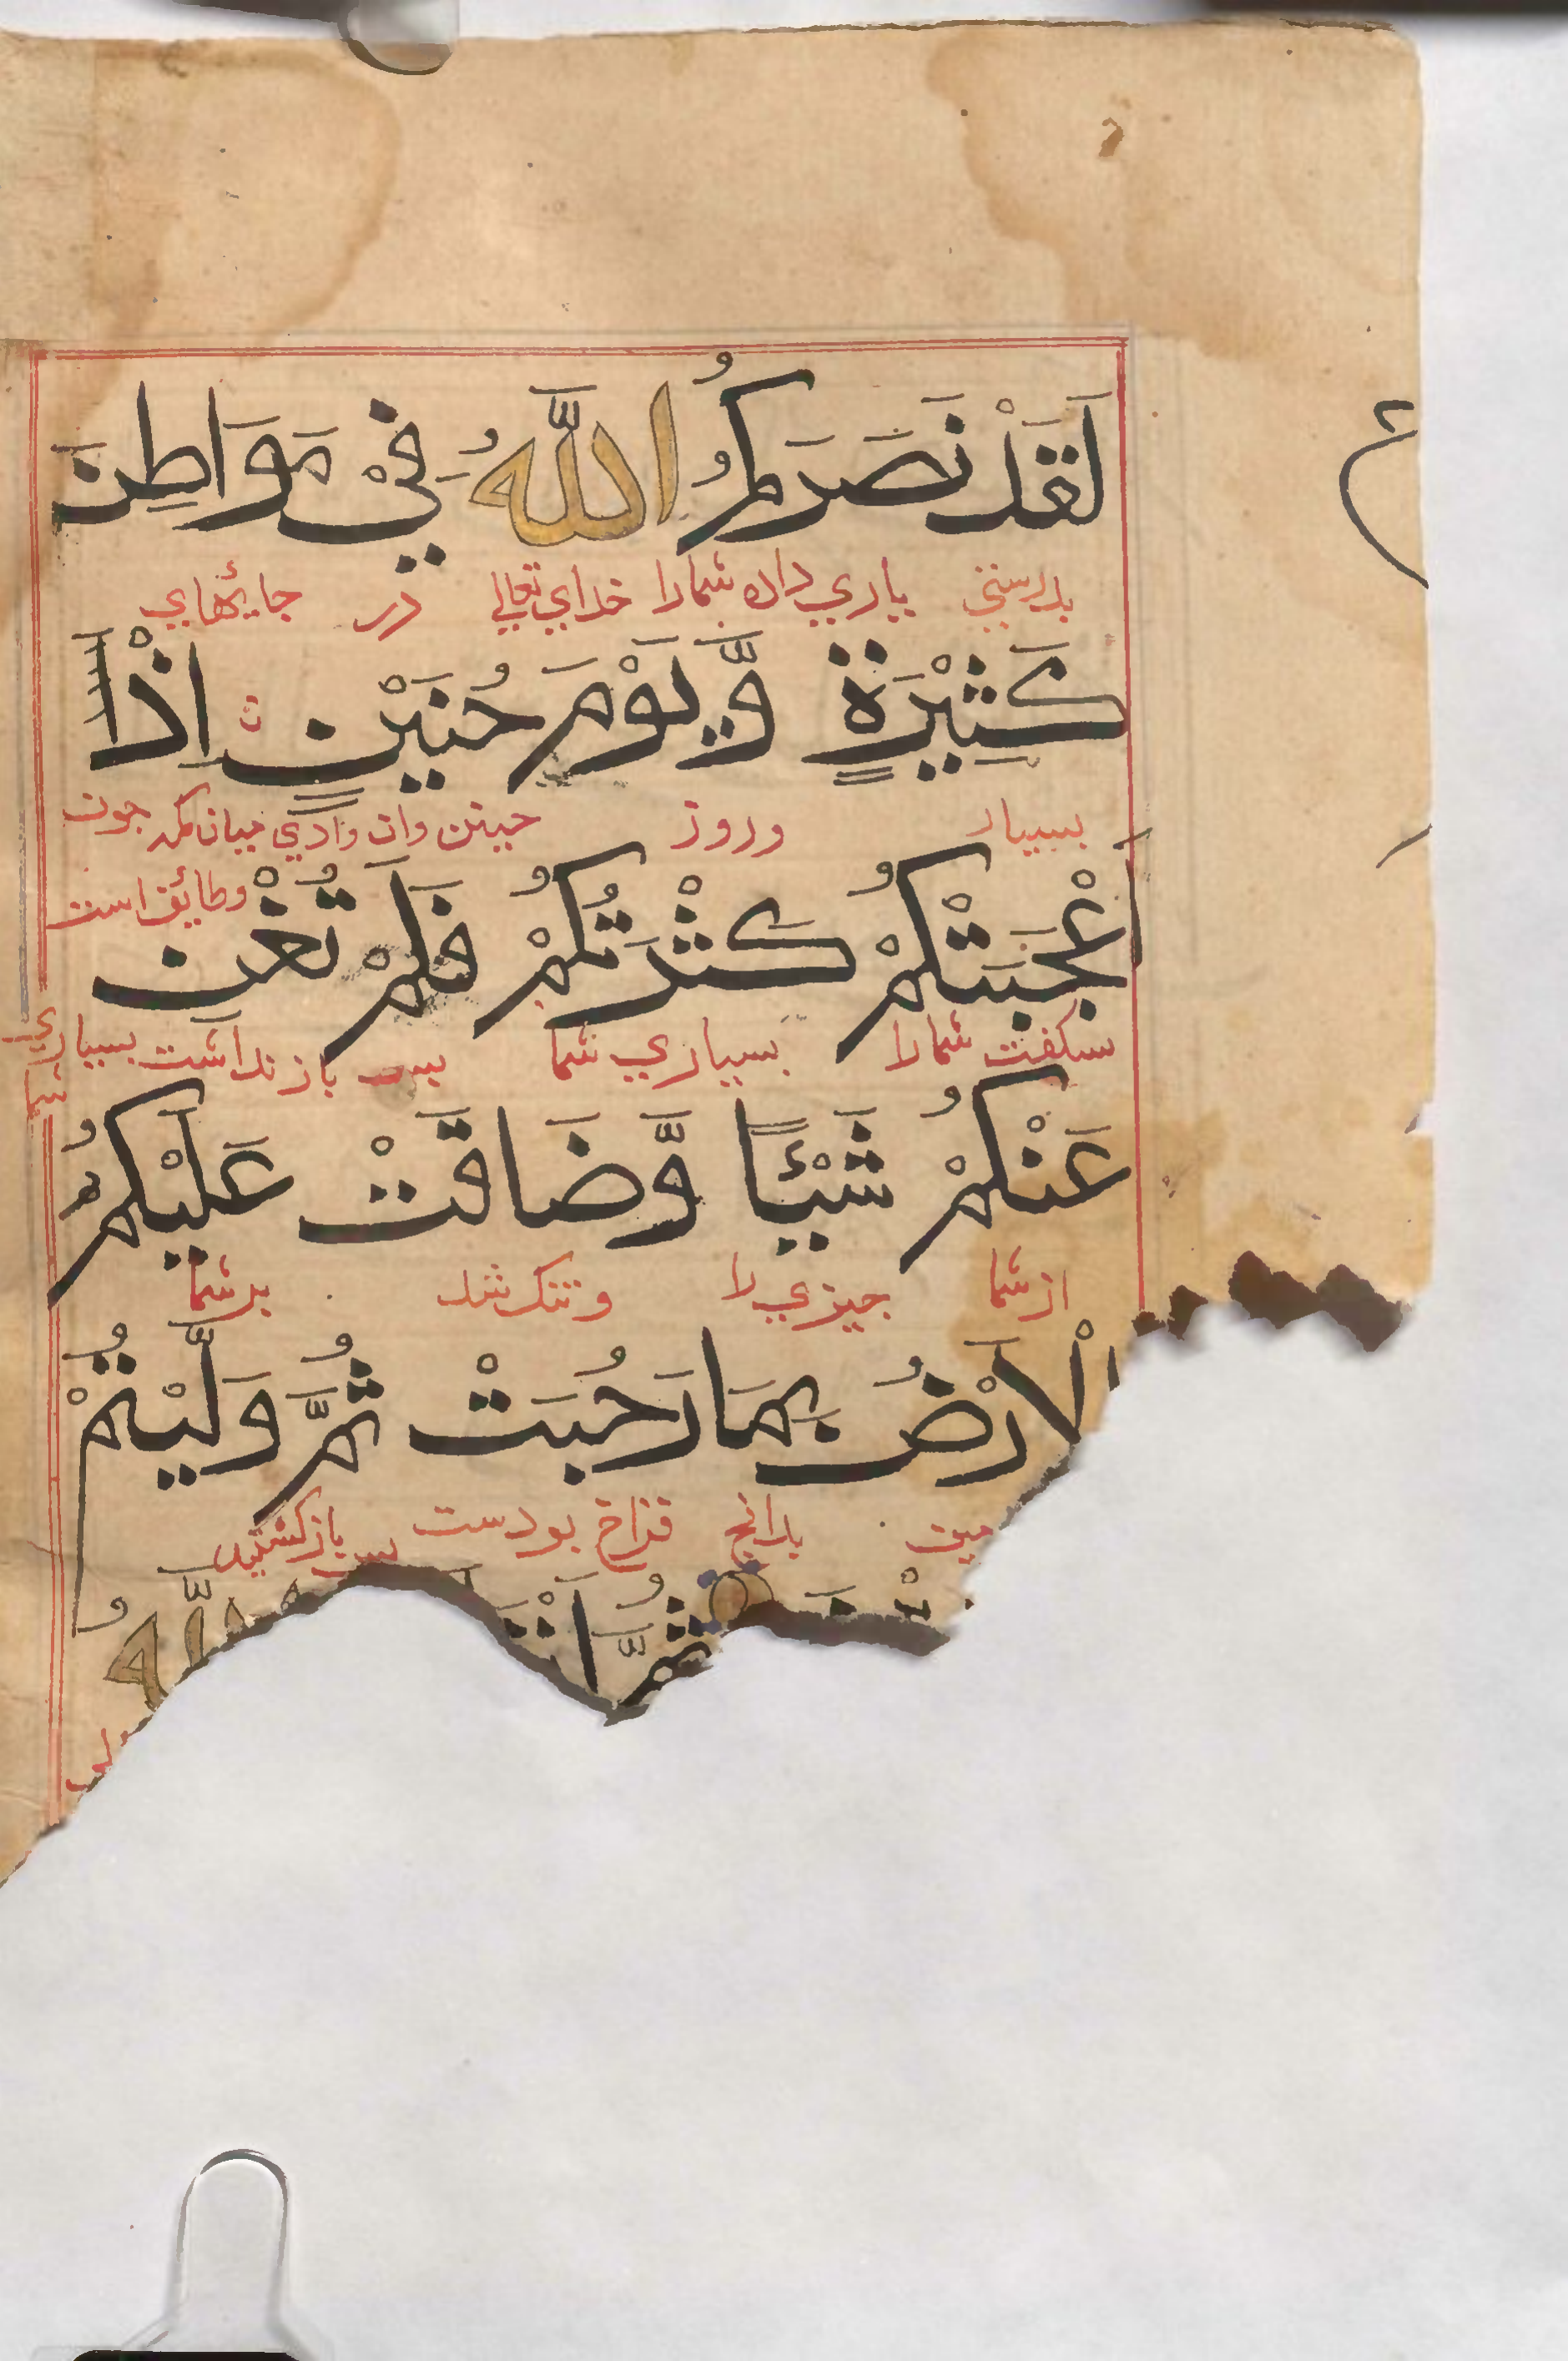 لَقَدْ نَصَرَكُمُ اللّٰهُ فِيْ مَوَاطِنَ
بدرستي ياري داد شمارا خداي تعالي در جايهاي
كَثِيْرَةٍ وَّيَوْمَ حُنَيْنٍ اِذْ ا
بسيار وروز حنين وان وادي ميان مكه جون
وطايف است
عْجَبَتْكُمْ كَثْرَتُكُمْ فَلَمْ تُغْنِ
شكفت شمارا بسياري شما پس باز نداشت بسياري
شما
عَنْكُمْ شَيْئًا وَّضَاقَتْ عَلَيْكُمُ
از شما جيزي را و تنك شد بر شما
الْاَرْضُ بِمَا رَحُبَتْ ثُمَّ وَلَّيْتُمْ
مين بدانج فراخ بودست پس بازكشتيد
ثُمَّ اَنْ اللّٰهُ